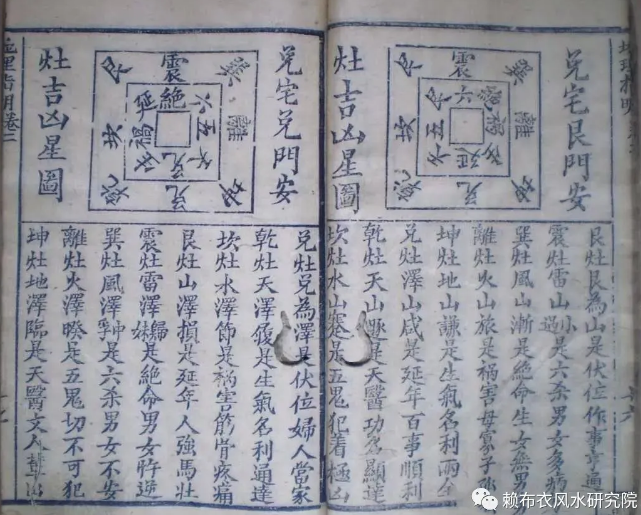 兌宅艮門安
灶吉凶星圖
巽
震
艮
離
坎
坤
兌
乾
六
五
延
艮灶艮為山是伏位作事亨通
震灶雷山小過是六杀男女多病
巽灶風山漸是絕命生女無男
離灶火山旅是禍害母寡子
坤灶地山謙是生氣名利兩全
兌灶澤山咸是延年百事順
乾灶天山遯是天醫功名顯達
坎灶水山蹇是五鬼犯着極凶
兌宅兌門安
灶吉凶星圖
巽
震
艮
離
坎
坤
兌
乾
六
絕
延
五
禍
兌灶兌為澤是伏位婦人當家
乾灶天澤履是生氣名利通達
坎灶水澤節是禍害筋骨疼痛
艮灶山澤損是延年人強馬壯
震灶雷澤歸妹是絕命男女忤逆
巽灶風澤中孚是六杀男女不安
離灶火澤睽是五鬼切不可犯
坤灶地澤臨是天醫文人
地理指明卷二
赖布衣风水研究院